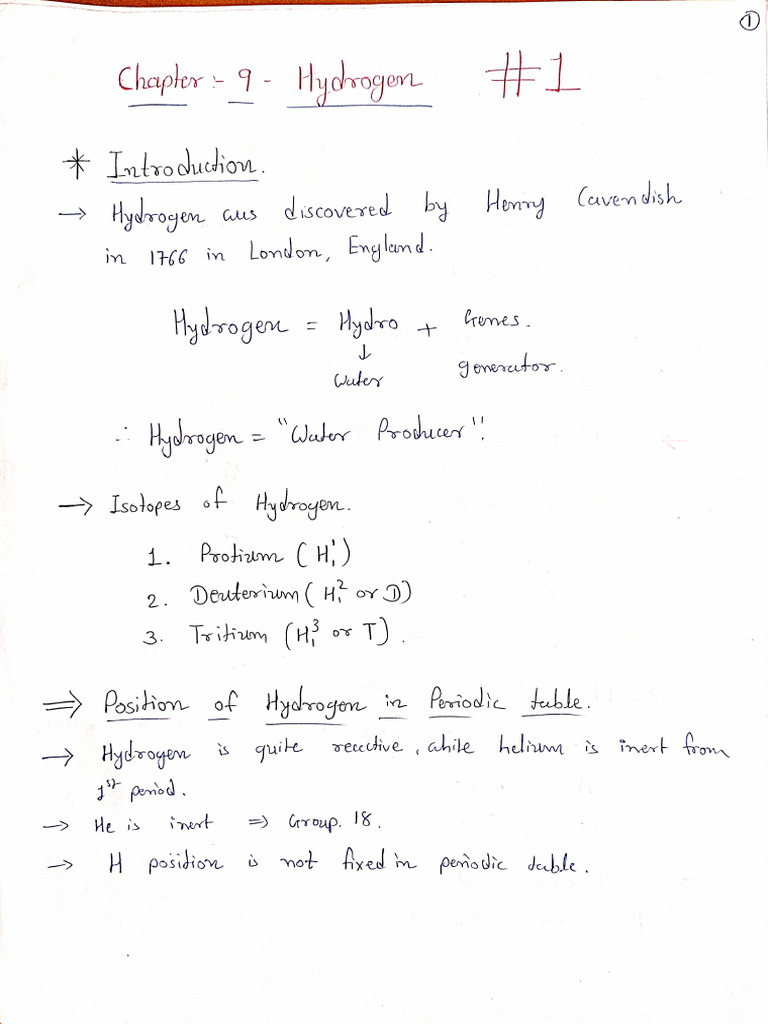 ①
Chapter :- 9 - Hydrogen #1
* Introduction.
→ Hydrogen aus discovered by Henry Cavendish
in 1766 in London, England.
Hydrogen = Hydro + Genes.
↓
Water generator.
∴ Hydrogen = "Water Producer".
→ Isotopes of Hydrogen.
1. Protium (H₁¹)
2. Deuterium (H₁² or D)
3. Tritium (H₁³ or T).
⇒ Position of Hydrogen in Periodic table.
→ Hydrogen is quite reactive, while helium is inert from
1st period.
→ He is inert ⇒ Group. 18.
→ H position is not fixed in periodic table.